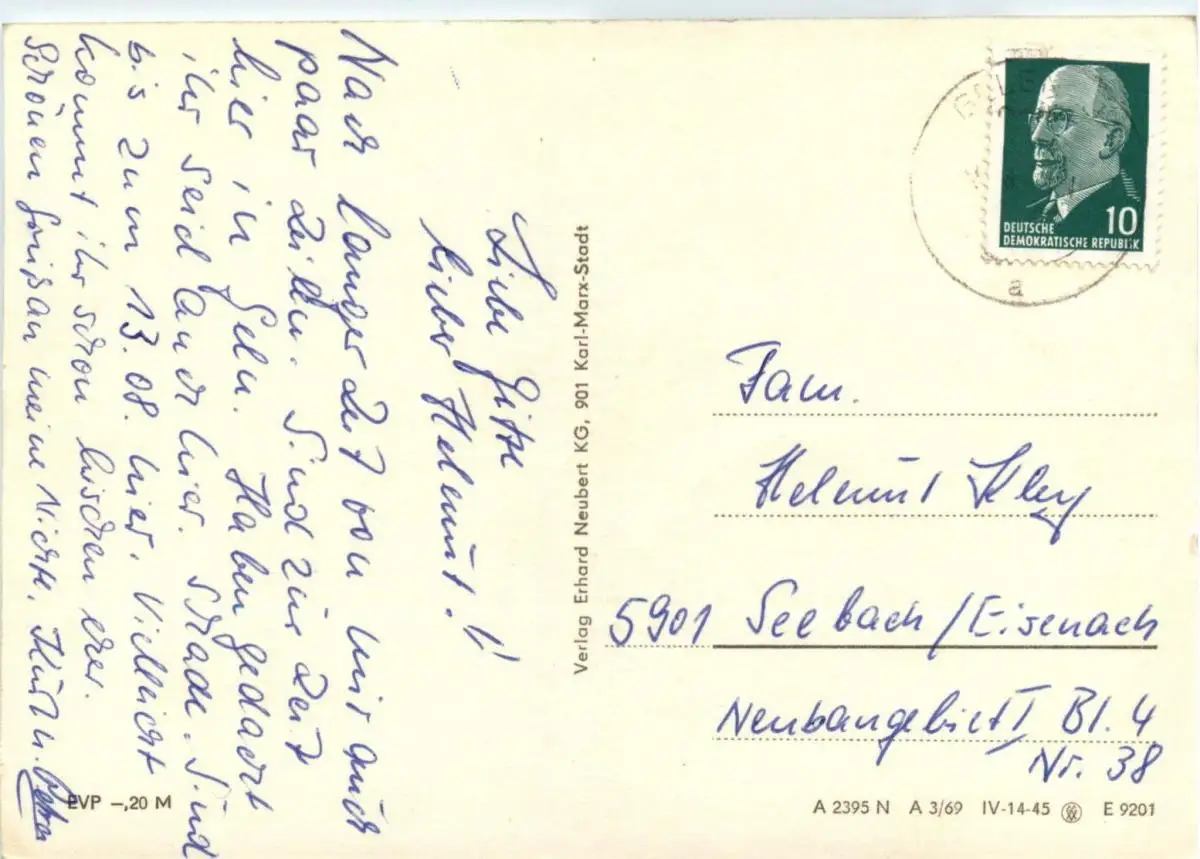 Liebe Gitte
lieber Helmut!!
Nach langer Zeit von mir auch
paar Zeilen. Sind zur Zeit
hier in Gehn. Haben gedacht
ihr seid auch hier. Schade. Sind
bis zum 13.08. hier. Vielleicht
kommt ihr schon bischen eher.
Schönen Grüßan meine Nichte. Kurt u. Petra
EVP –,20 M
Verlag Erhard Neubert KG, 901 Karl-Marx-Stadt
DEUTSCHE
DEMOKRATISCHE REPUBLIK
10
a
Fam.
Helmut Kley
5901 Seebach/Eisenach
Neubaugebiet I Bl. 4
Nr. 38
A 2395 N A 3/69 IV-14-45 E 9201